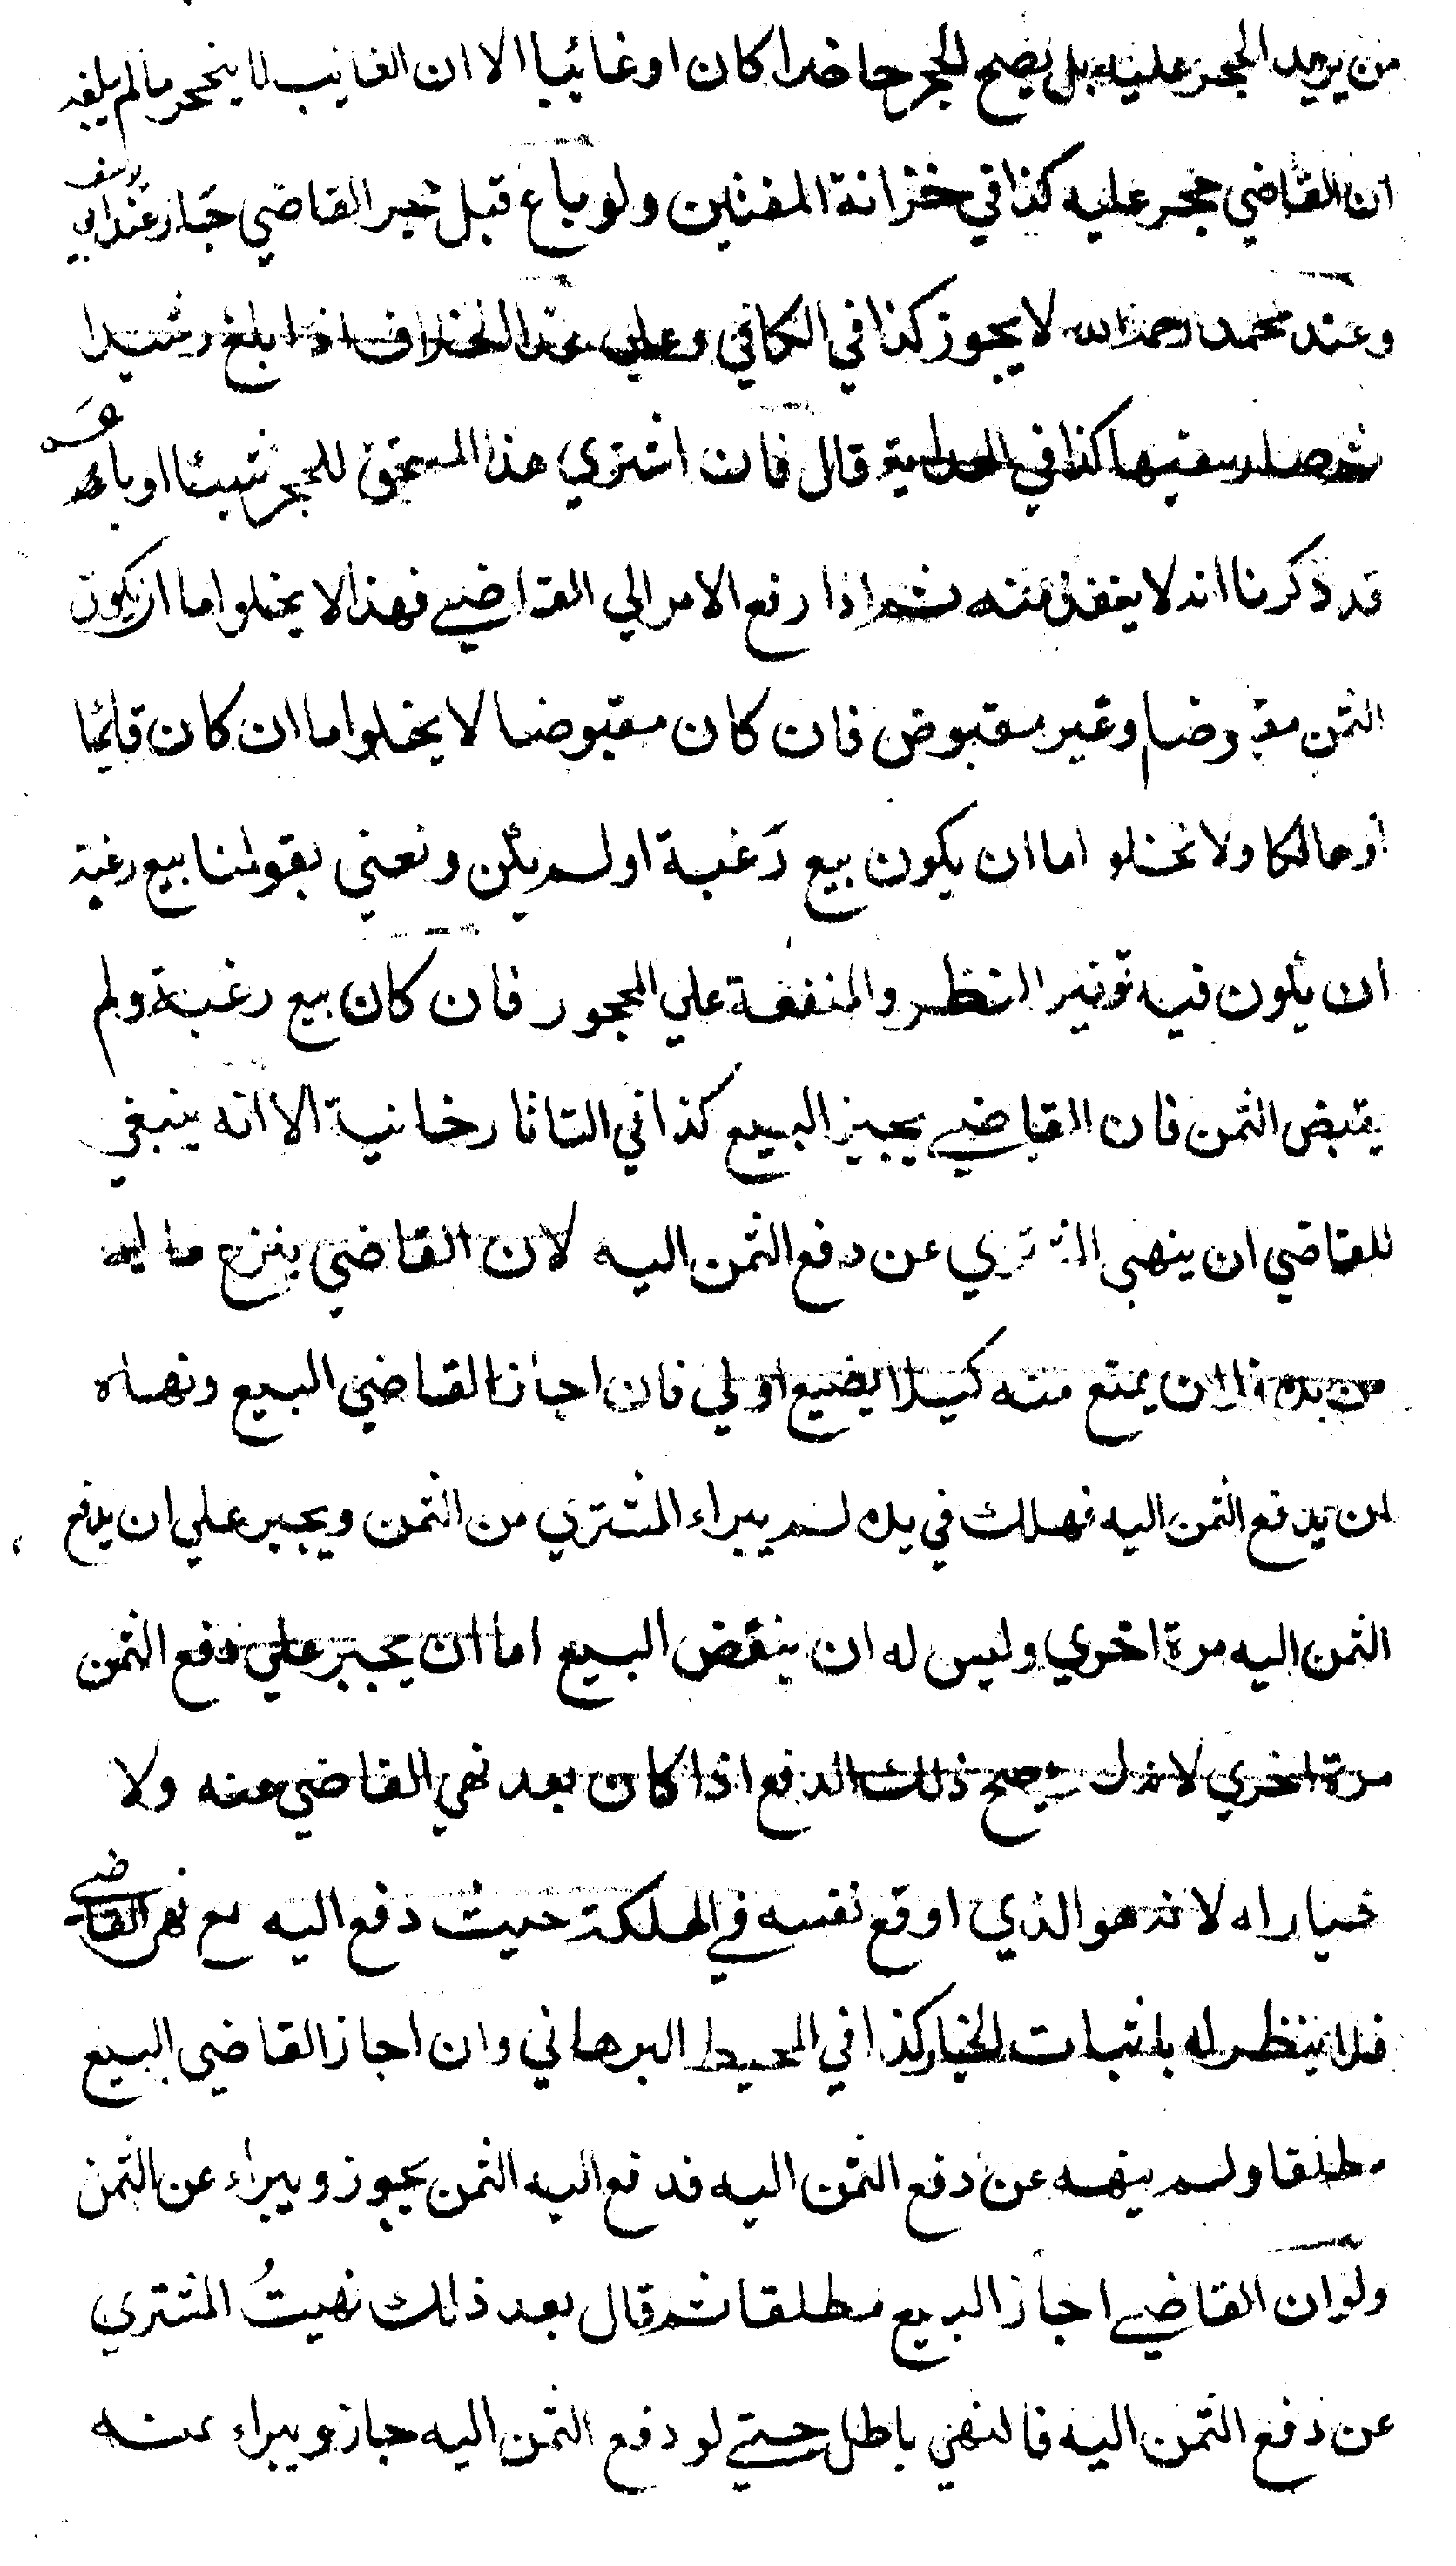 من يريد الحجر عليه بل يصح الحجر حاضرا كان او غائبا الا ان الغايب لا ينحجر ما لم يبلغه
ان القاضي حجر عليه كذا في خزانة المفتين ولو باع قبل حجر القاضي جاز عند ابي يوسف
وعند محمد رحمه الله لا يجوز كذا في الكافي وعلي هذا الخلاف اذا بلغ رشيدا
ثم صار سفيها كذا في الهداية قال فان اشتري هذا المستحق للحجر شيئا او باعه
قد ذكرنا انه لا ينفذ منه ثم اذا رفع الامر الي القاضي فهذا لا يخلوا اما ان يكون
الثمن مقبوضا وغير مقبوض فان كان مقبوضا لا يخلوا اما ان كان قايما
او هالكا ولا تخلو اما ان يكون بيع رغبة او لم يكن ونعني بقولنا بيع رغبة
ان يكون فيه توفير النظر والمنفعة علي المحجور فان كان بيع رغبة ولم
يقبض الثمن فان القاضي يجيز البيع كذا في التاتارخانية الا انه ينبغي
للقاضي ان ينهي المشتري عن دفع الثمن اليه لان القاضي ينزع ماله
من يده فالان يمنع منه كيلا يضيع اولي فان اجاز القاضي البيع ونهاه
ان يدفع الثمن اليه فهلك في يده لم يبراء المشتري من الثمن ويجبر علي ان يدفع
الثمن اليه مرة اخري وليس له ان ينقض البيع اما ان يجبر علي دفع الثمن
مرة اخري لانه لم يصح ذلك الدفع اذا كان بعد نهي القاضي عنه ولا
خيار له لانه هو الذي اوقع نفسه في الهلكة حيث دفع اليه مع نهي القاضي
فلا ينظر له باثبات الخيار كذا في المحيط البرهاني وان اجاز القاضي البيع
مطلقا ولم ينهه عن دفع الثمن اليه فدفع اليه الثمن يجوز ويبراء عن الثمن
ولو ان القاضي اجاز البيع مطلقا ثم قال بعد ذلك نهيتُ المشتري
عن دفع الثمن اليه فالنهي باطل حتي لو دفع الثمن اليه جاز ويبراء عنه